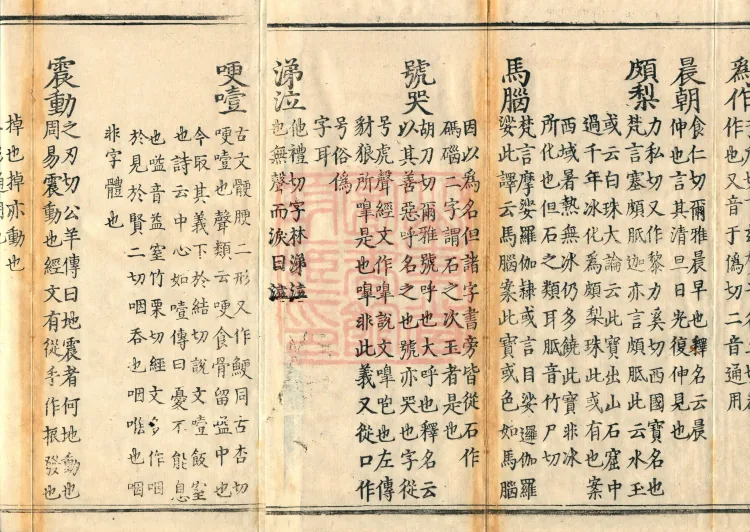 為作
作也又音于偽切二音通用
晨朝
食仁切爾雅晨早也釋名云晨
仲也言其清旦日光復仲見也
頗梨
力私切又作黎力奚切西國寶名也
梵言塞頗胝迦亦言頗胝此云水玉
或云白珠大論云此寶出山石窟中
過千年冰化為頗梨珠此或有也案
西域暑熱無冰仍多饒此寶非冰
所化也但石之類耳胝音竹尸切
馬腦
梵言摩娑羅伽隸或言目娑邏伽羅
娑此譯云馬腦案此寶或色如馬腦
因以為名但諸字書旁皆從石作
碼碯二字謂石之次玉者是也
號哭
胡刀切爾雅號呼也大呼也釋名云
以其善惡呼名之也號亦哭也字從
号虎聲經文作嘷說文嘷咆也左傳
豺狼所嘷是也嘷非此義又從口作
号俗偽
字耳
涕泣
他禮切字林涕泣
也無聲而淚曰泣
哽噎
古文骾腰二形又作鯁同古杏切
哽噎也聲類云哽食骨留嗌中也
今取其義下於結切說文噎飯窒
也詩云中心如噎傳曰憂不能息
也嗌音益窒竹栗切經文多作咽
於見於賢二切咽吞也咽喉也咽
非字體也
震動
之刃切公羊傳曰地震者何地動也
周易震動也經文有從手作振發也
掉也掉亦動也